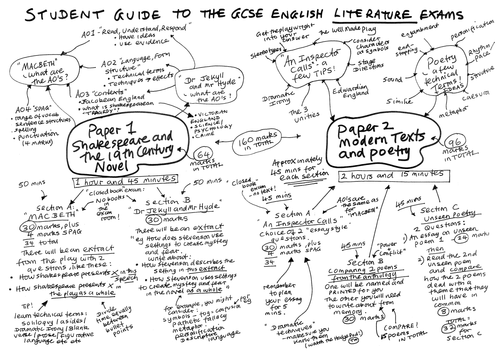 STUDENT GUIDE TO THE GCSE ENGLISH LITERATURE EXAMS
"MACBETH"
- what are
the AO's?
AO1 - Read, Understand, Respond
• Have ideas
• Use evidence
AO2 "Language, Form
structure"
• Technical terms
• Techniques
effects
AO3 "Contexts"
• Jacobean England
• What is
Shakespearean
Tragedy?
AO4 "SPAG"
• range of vocab
• Sentence structures
• Spelling
• Punctuation
(4 marks)
Dr Jekyll
and Mr Hyde -
what are
the AO's?
• VICTORIAN
ENGLAND
• SCIENCE /
PSYCHOLOGY
• CRIME
Paper 1
Shakespeare and
The 19th Century
Novel
64
marks
IN TOTAL
160 marks
IN TOTAL
An Inspector
Calls - a few
TIPS!
Get the playwright
into your answer
Stereotypes
The Well Made Play
Consider
characters as
symbols
Stage
Directions
Edwardian
England
The 3
Unities
Dramatic
Irony
Poetry
- a few
technical
terms!
enjambment
end-
stopping
personification
Rhyme
Rhythm
Structure
caesura
metaphor
Simile
Sound
Paper 2
Modern Texts
and poetry
96
marks
IN TOTAL
1 hour and 45 minutes
50 mins
50 mins
"closed book exam":
NO books
in the
EXAM
ROOM!
Section A
"MACBETH"
30 marks, plus
4 marks SPAG
34 total
There will be an extract
from the play with 2
questions like these:
• How Shakespeare presents X in this
speech
• How Shakespeare presents X in
the play as a whole
TIP!
learn technical terms:
soliloquy / asides /
Dramatic Irony / Blank
verse / prose / figurative
language etc etc
Divide time
equally
between
bullet
points
Section B
"Dr Jekyll and Mr Hyde"
30 marks
There will be an extract
eg How does Stevenson use
settings to create mystery
and fear?
Write about:
• How Stevenson describes the
setting in this extract
• How Stevenson uses settings
to create mystery and fear
in the novel as a whole
for example, you might
consider:
symbols
pathetic fallacy
metaphor
personification
Descriptive
language
Approximately
45 mins for
each section
2 hours and 15 minutes
"closed
book
exam"
45 mins
Section A
An Inspector Calls
Choice of 2 "essay style"
questions
30 marks, plus
4 marks SPAG
34
remember
to plan
your essay
for 5
mins.
AOs are
the same
as for
"MACBETH"
45 mins
"Power
and
Conflict"
Section B
Comparing 2 poems
from the anthology
One will be named and
PRINTED for you
The other you will need
to write about from
memory
30 marks
COMPARE!
2 poems
45 mins
Section C
Unseen Poetry
2 Questions:
1) An essay on unseen
poem 1
24 marks
then
2) Read the 2nd
unseen poem
and compare
how the 2 poems
deal with a
theme that they
will have in
common
8 marks
TOTAL:
32 marks
for
Section C